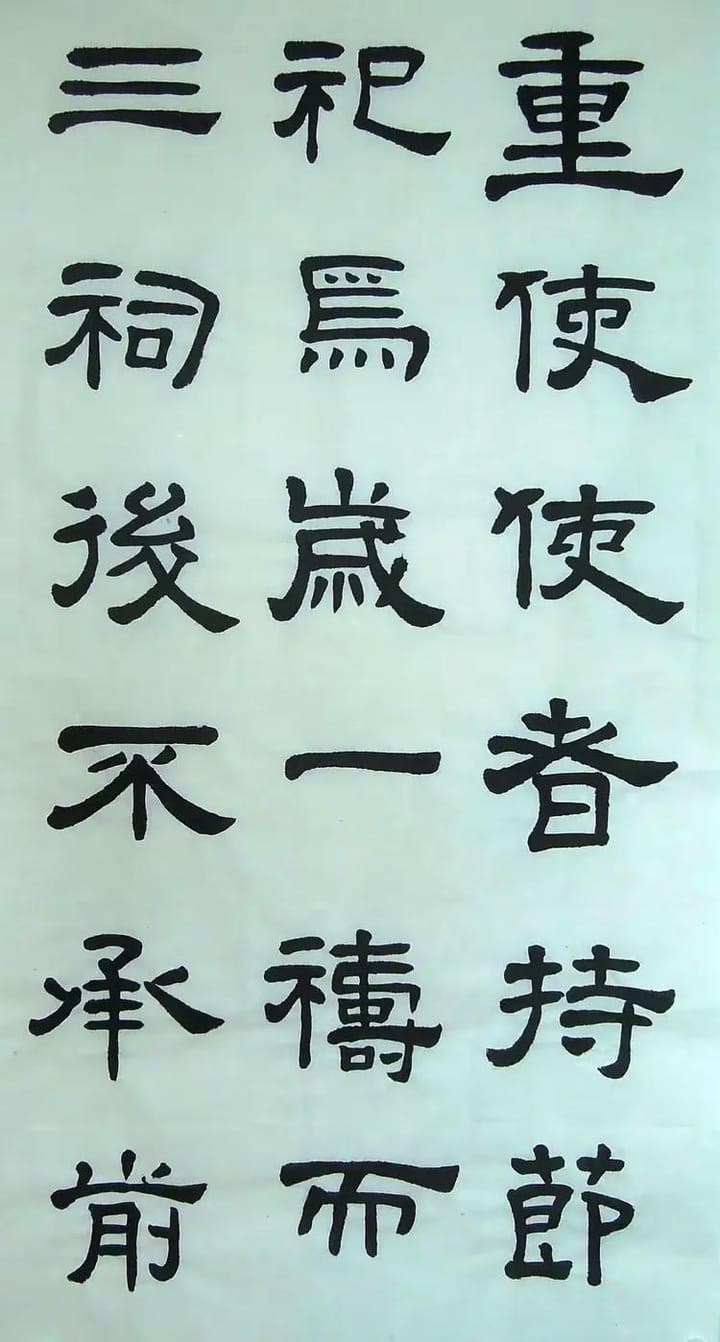 重使使者持節
祀焉歲一禱而
三祠後不承前